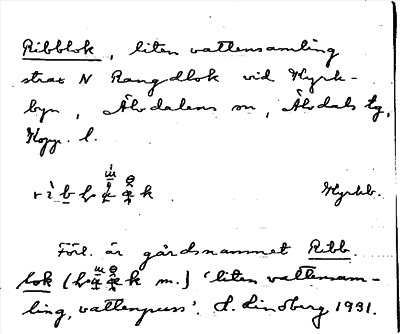 Ribblok, liten vattensamling
strax N Rangdlok vid Kyrk-
byn, Älvdalens sn, Älvdals tg,
Kopp. l.
Kyrkb.
Förl. är gårdsnamnet Ribb
lok (m.) 'liten vattensam-
ling, vattenpuss'. S. Lindberg 1931.